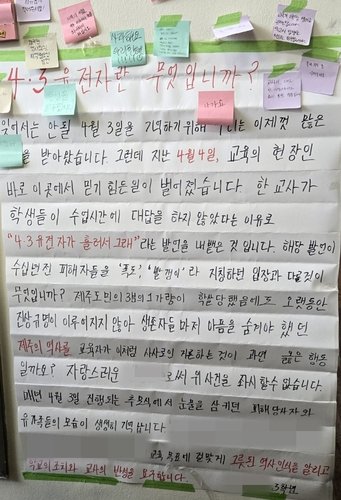 4·3 유전자란 무엇입니까?
잊어서는 안될 4월 3일을 기억하기 위해 우리는 이제껏 많은
을 받아왔습니다. 그런데 지난 4월4일, 교육의 현장인
바로 이곳에서 믿기 힘든일이 벌어졌습니다. 한 교사가
학생들이 수업시간에 대답을 하지 않았다는 이유로
"4·3유전자가 흘러서 그래"라는 발언을 내뱉은 것 입니다. 해당 발언이
수십년전 피해자들을 '폭도', '빨갱이'라 지칭하던 입장과 다를것이
무엇입니까? 제주도민의 3분의 1가량이 학살당했음에도 오랫동안
진상규명이 이루어지지 않아 생존자들마저 아픔을 숨겨야 했던
제주의 역사를 교육자가 이처럼 사사로이 거론하는 것이 과연 옳은 행동
일까요? 자랑스러운 로써 위 사건을 좌시할 수 없습니다.
매년 4월 3일 진행되는 추모식에서 눈물을 삼키던 피해당사자와
유가족들의 모습이 생생히 기억납니다.
교육 목표에 걸맞게 올바른 역사인식을 알리고
학교의 조치와 교사의 반성을 요구합니다.
3학년